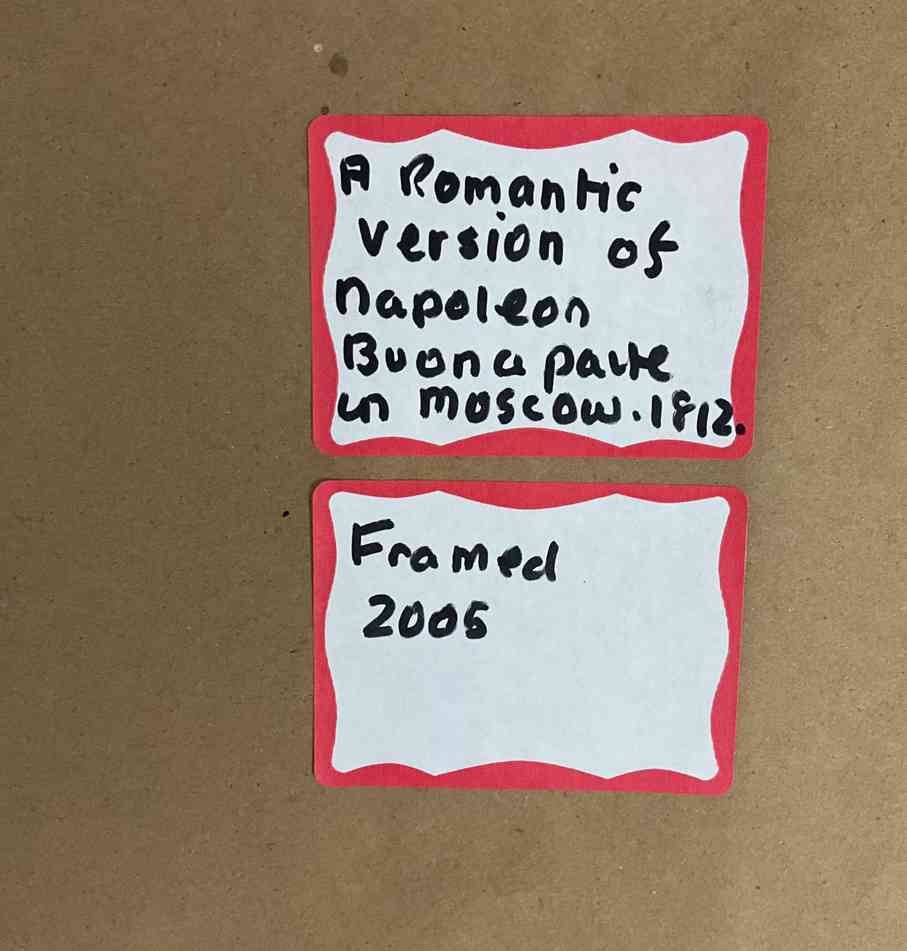 A Romantic
version of
napoleon
Buonaparte
in moscow.1812.
Framed
2005